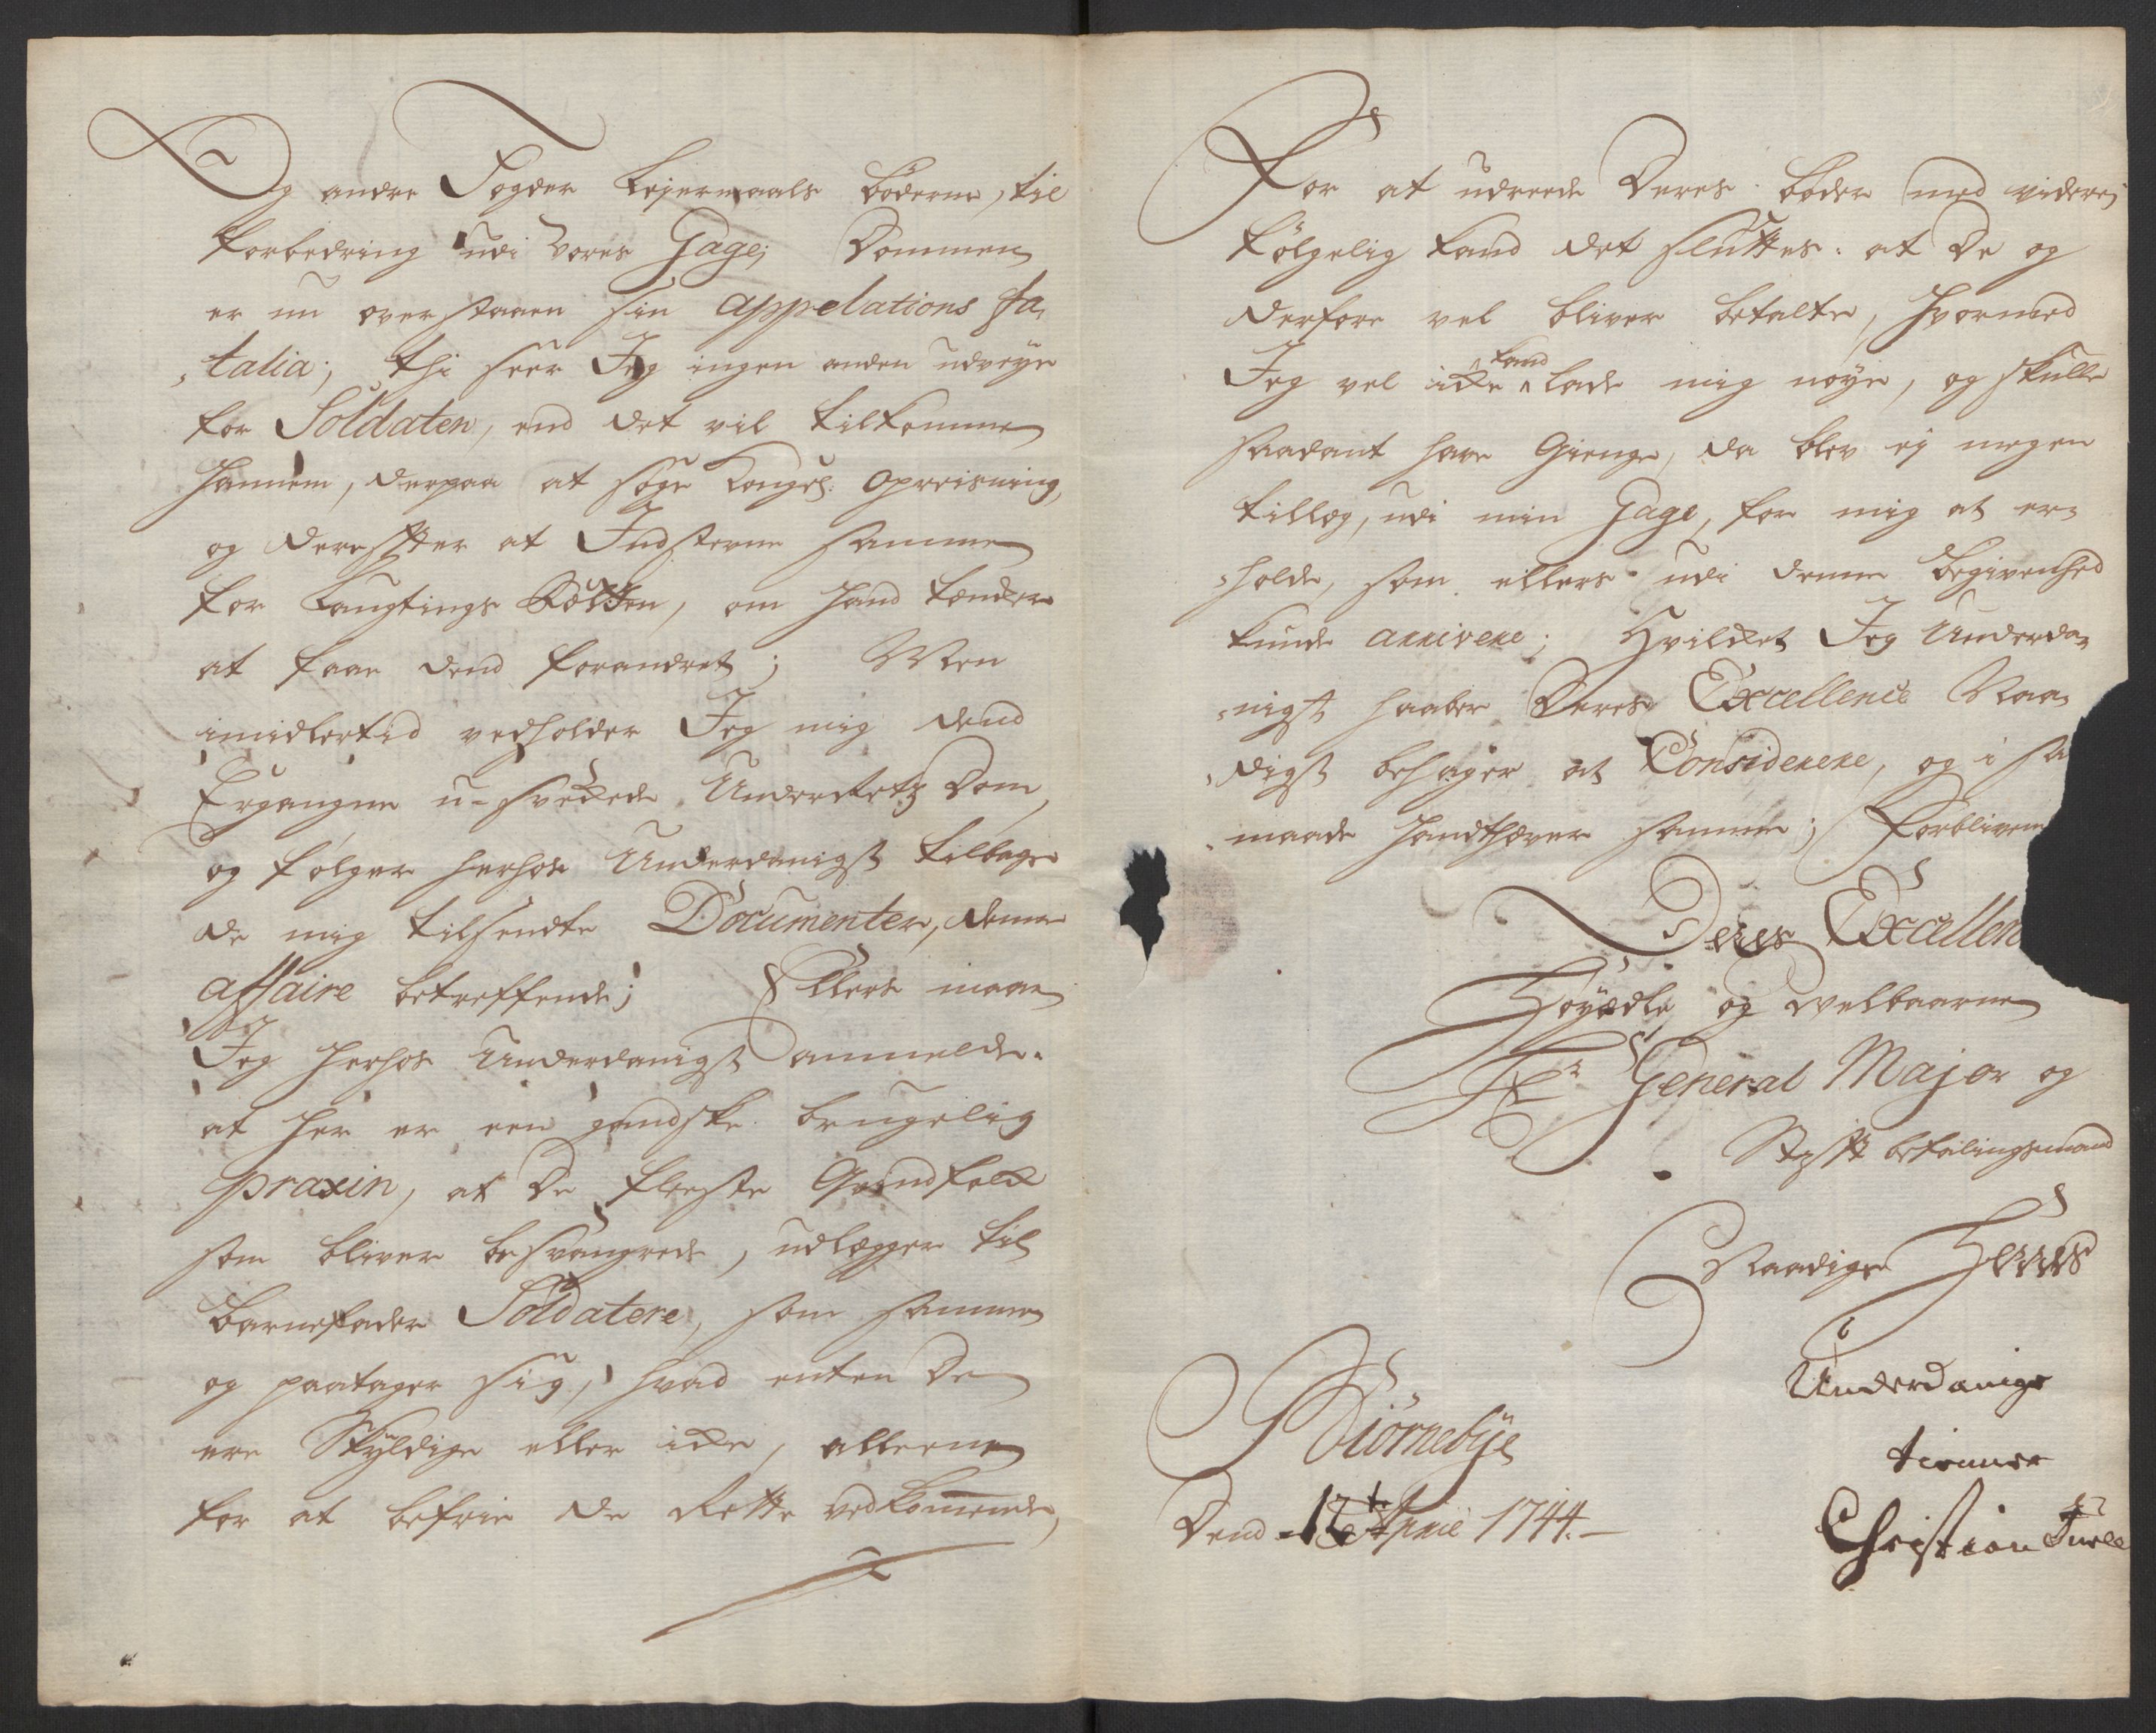 Og andre Fogder Lejermaals bøderne, til
forbedring udi vores Gage; Dommen
er nu overstaaen sin appelations fa-
talia; thi seer Jeg ingen anden udveye
for Soldaten, end det vil tilkomme
hannem, derpaa at søge Kongel: opreisning,
og derefter at Indstevne samme
for Laugtings Rætten, om hand kender
at faae dend forandret; Men
imidlertid vedholder Jeg mig dend
Ergangne u-svekede Underretz Dom,
og følger herhos Underdanigst tilbage
de mig tilsendte Documenter, denne
affaire betreffende; Ellers maae
Jeg herhos Underdanigst anmelde.
at her er een gandske brugelig
praxin, at De fleeste Qvindfolk
som bliver besvangrede, udlegger til
barnefader Soldatere, som samme
og paatager sig, hvad enten De
ere Skyldige eller ikke, alleene
for at befrie de Rette vedkommende,
For at udreede Deres bøder med videre;
følgelig kand det sluttes: at De og
derfore vel bliver betalte, hvormed
Jeg vel ikke kand lade mig nøye, og skulle
saadant have Gienge, da blev ej megen
tillæg, udi min Gage, for mig at er-
holde, som ellers udi denne begivenhed
kunde arrivere; Hvilket Jeg Underda-
nigst haaber Deres Excellence Naa-
digst behager at Considerere, og i sa
maade handthæver samme; Forbliven
Deres Excellen
Høyædle og Welbaarne
Hr General Major og
Stift befalingsmand
Naadige Herres
Underdanige
tienner
Biørnebye
Dend 12t April 1744.
Christian